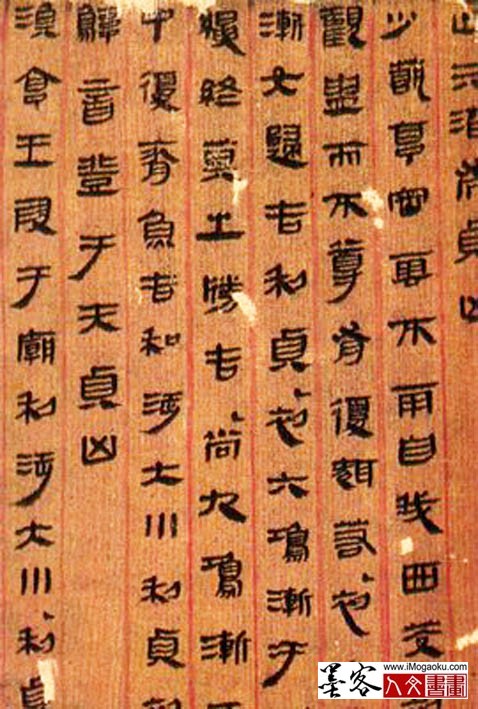 貞凶
少亨密雲不雨自我西茭
觀盥而不尊有復若初
漸女歸吉利貞初六漸于
終莫之勝吉尚九漸
中復魚吉和涉大川利貞初
音登于天貞凶
渙亨王叚于廟利涉大川利貞
墨客
www.iMogaoku.com
人文書畫